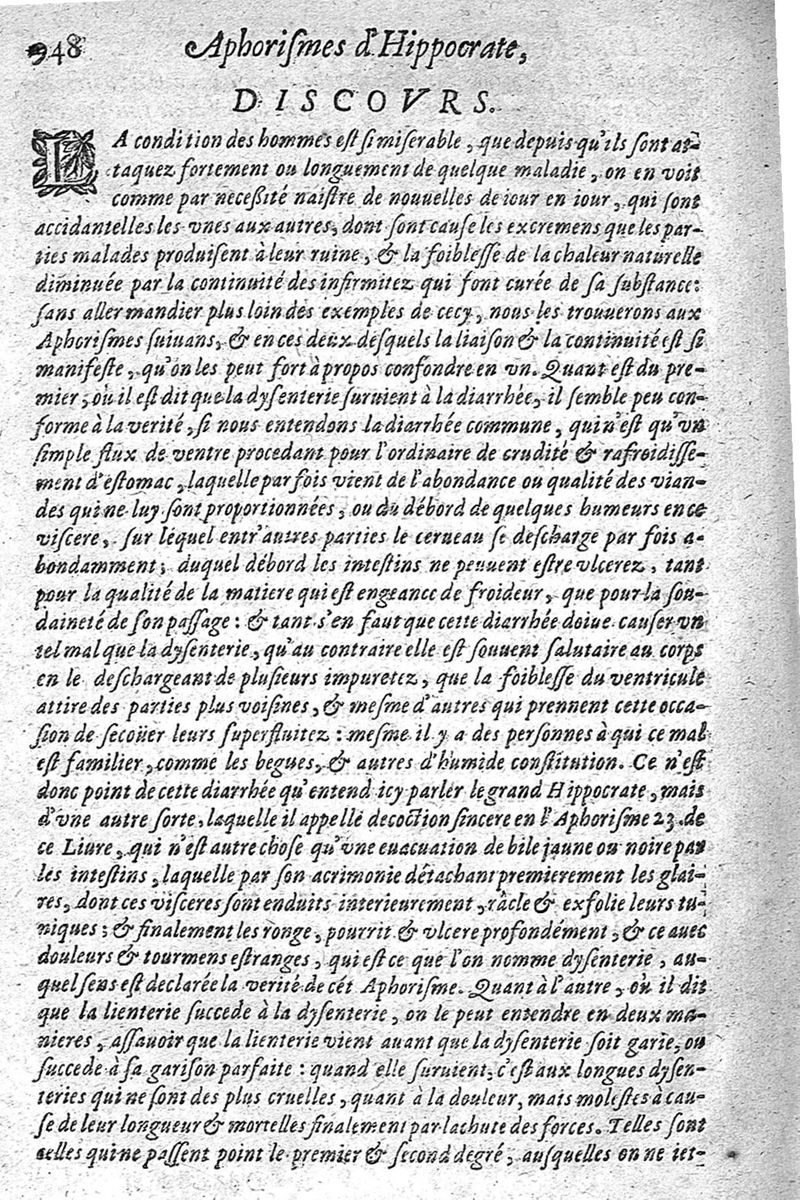 948 Aphorismes d'Hippocrate,
DISCOVRS.
LA condition des hommes est si miserable, que depuis qu'ils sont at-
taquez fortement ou longuement de quelque maladie, on en voit
comme par necessité naistre de nouuelles de iour en iour, qui sont
accidantelles les vnes aux autres, dont sont cause les excremens que les par-
ties malades produisent à leur ruine, & la foiblesse de la chaleur naturelle
diminuée par la continuité des infirmitez qui font curée de sa substance:
sans aller mandier plus loin des exemples de cecy, nous les trouuerons aux
Aphorismes suiuans, & en ces deux desquels la liaison & la continuité est si
manifeste, qu'on les peut fort à propos confondre en vn. Quant est du pre-
mier, où il est dit que la dysenterie suruient à la diarrhée, il semble peu con-
forme à la verité, si nous entendons la diarrhée commune, qui n'est qu'vn
simple flux de ventre procedant pour l'ordinaire de crudité & rafroidisse-
ment d'estomac, laquelle par fois vient de l'abondance ou qualité des vian-
des qui ne luy sont proportionnées, ou du débord de quelques humeurs en ce
viscere, sur lequel entr'autres parties le cerueau se descharge par fois a-
bondamment; duquel débord les intestins ne peuuent estre vlcerez, tant
pour la qualité de la matiere qui est engeance de froideur, que pour la sou-
daineté de son passage: & tant s'en faut que cette diarrhée doiue causer vn
tel mal que la dysenterie, qu'au contraire elle est souuent salutaire au corps
en le deschargeant de plusieurs impuretez, que la foiblesse du ventricule
attire des parties plus voisines, & mesme d'autres qui prennent cette occa-
sion de secoüer leurs superfluitez: mesme il y a des personnes à qui ce mal
est familier, comme les begues, & autres d'humide constitution. Ce n'est
donc point de cette diarrhée qu'entend icy parler le grand Hippocrate, mais
d'vne autre sorte, laquelle il appelle decoction sincere en l'Aphorisme 23. de
ce Liure, qui n'est autre chose qu'vne euacuation de bile jaune ou noire par
les intestins, laquelle par son acrimonie détachant premierement les glai-
res, dont ces visceres sont enduits interieurement, râcle & exfolie leurs tu-
niques; & finalement les ronge, pourrit & vlcere profondément, & ce auec
douleurs & tourmens estranges, qui est ce que l'on nomme dysenterie, au-
quel sens est declarée la verité de cét Aphorisme. Quant à l'autre, où il dit
que la lienterie succede à la dysenterie, on le peut entendre en deux ma-
nieres, assauoir que la lienterie vient auant que la dysenterie soit garie, ou
succede à sa garison parfaite: quand elle suruient, c'est aux longues dysen-
teries qui ne sont des plus cruelles, quant à la douleur, mais molestes à cau-
se de leur longueur & mortelles finalement par la chute des forces. Telles sont
celles qui ne passent point le premier & second degré, ausquelles on ne iet-